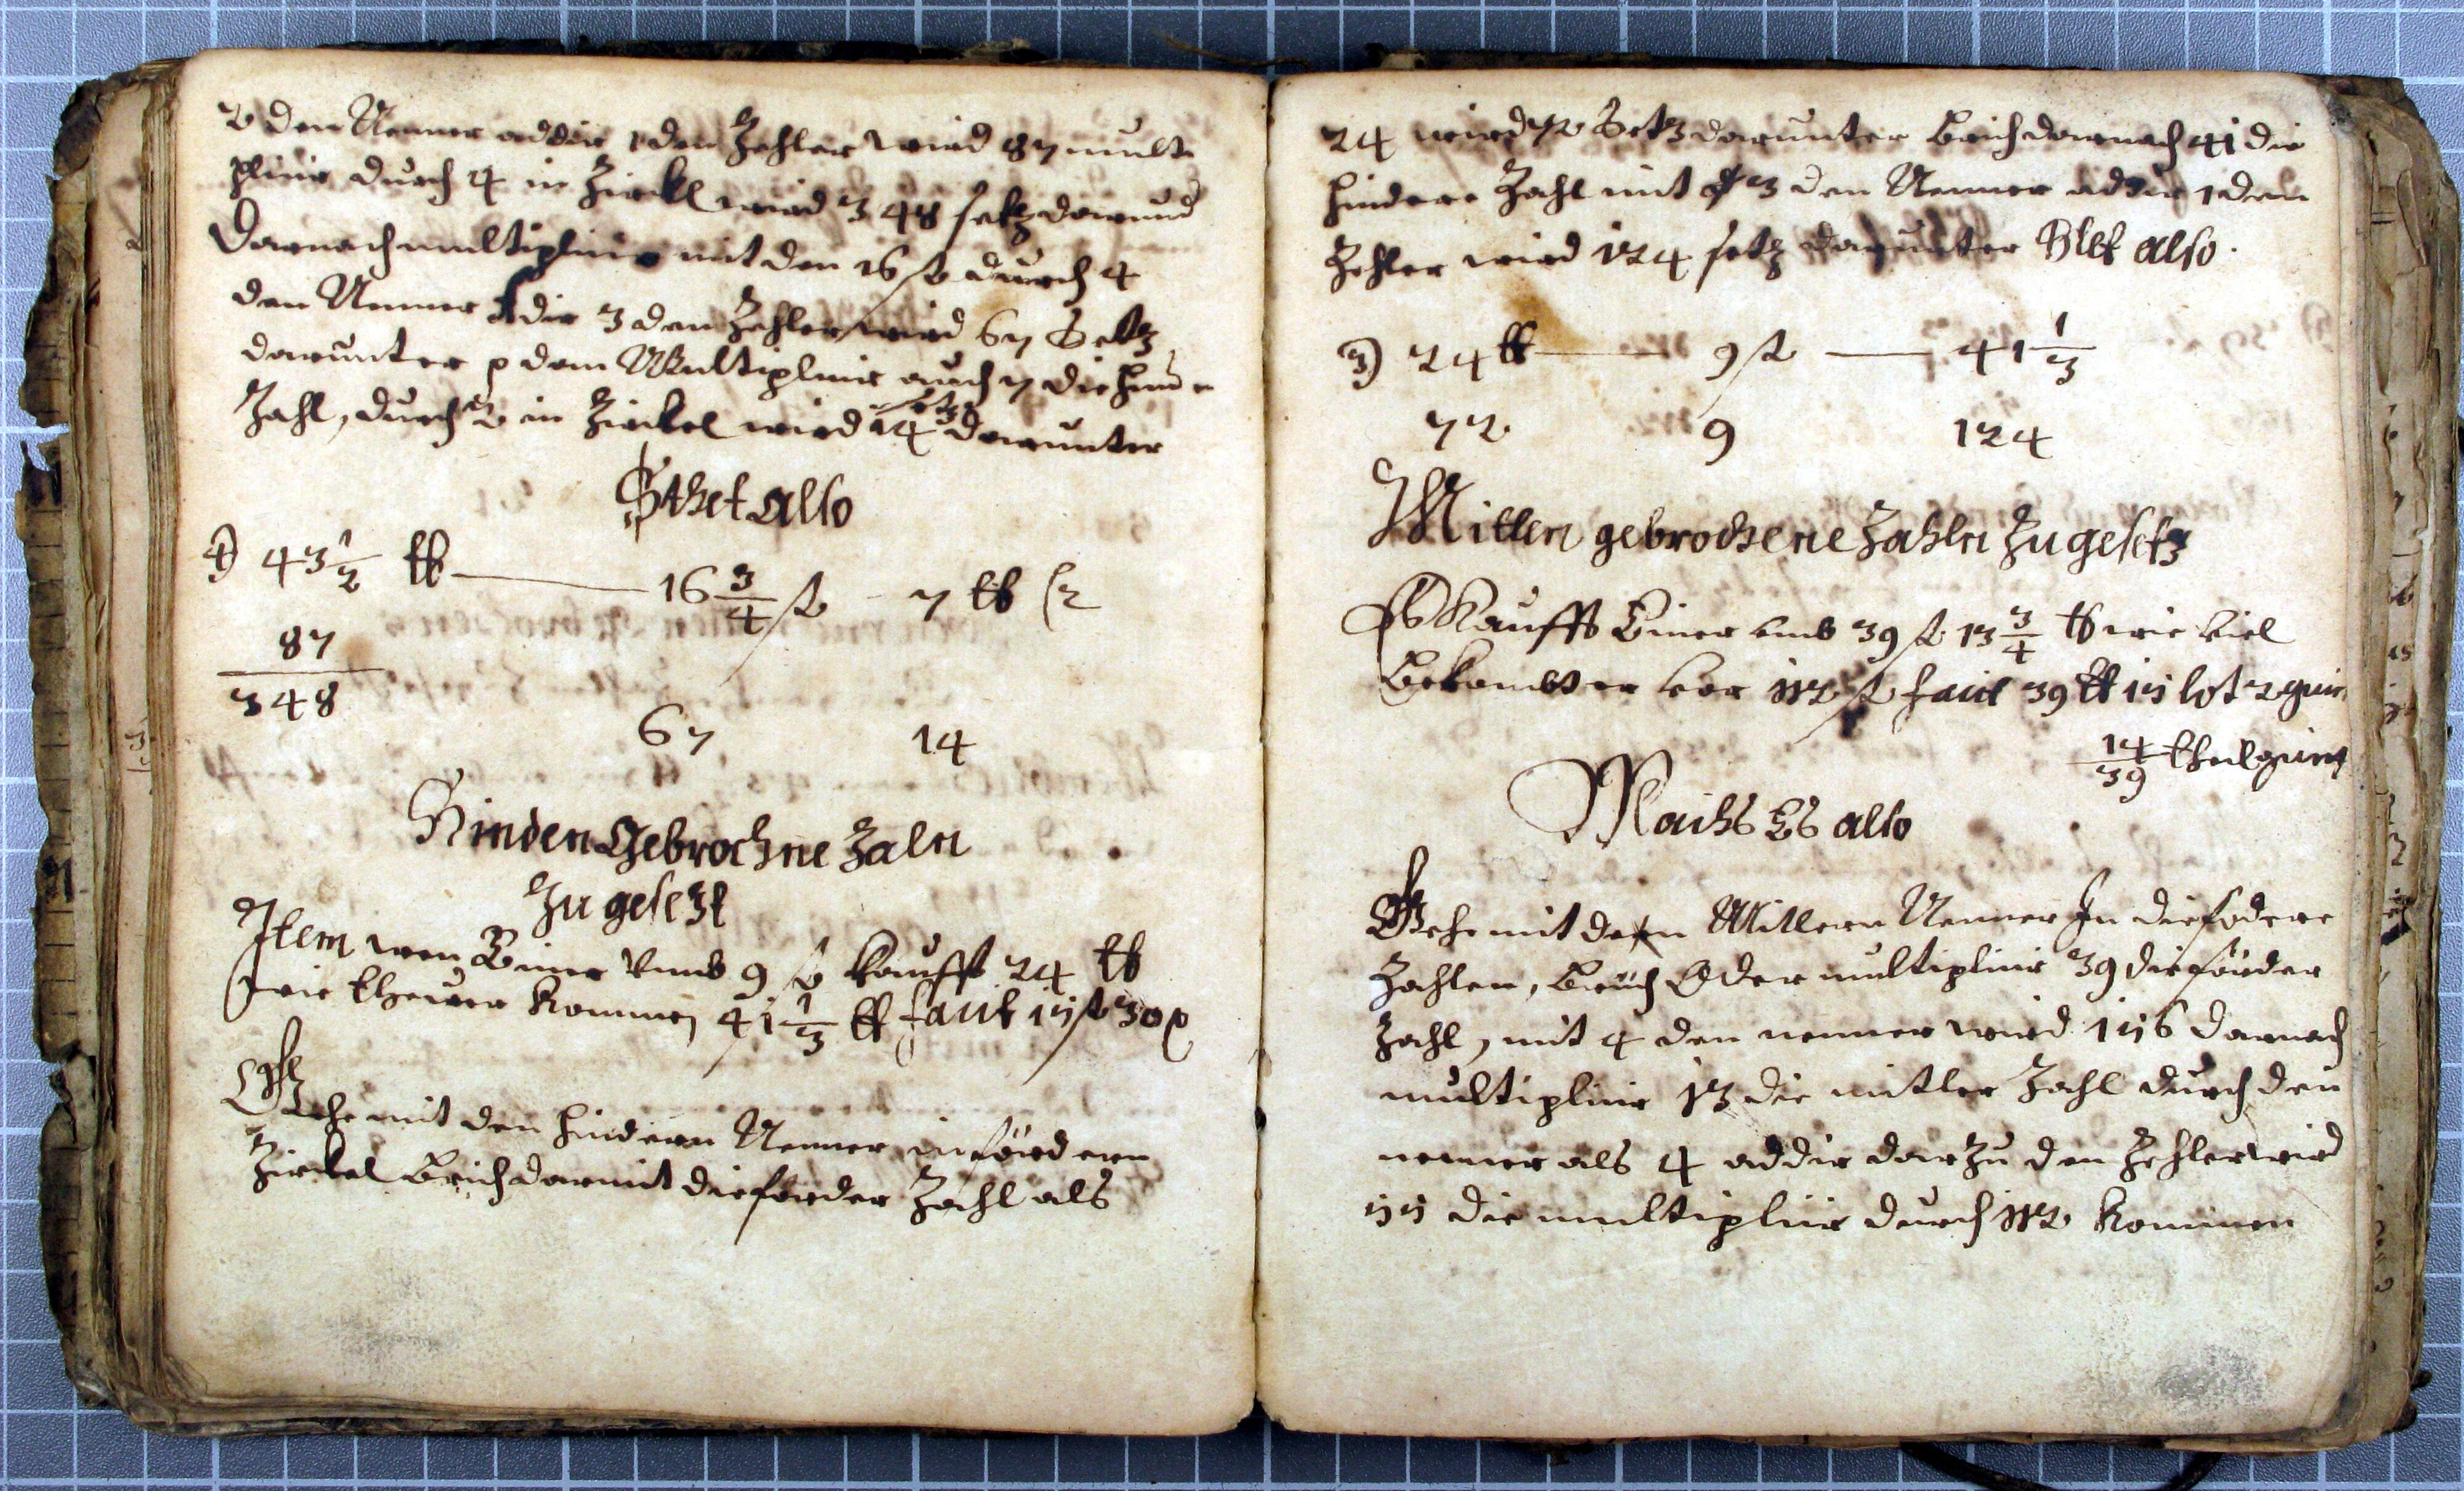 2 den Nenner addir 1 den Zehler wird 87 multi
plicir durch 4 in Zirckl wird 348 setz darund
Darnach multiplicir mit den 16 fl durch 4
den Nenner Adir 3 den Zehler wird 67 Setz
darunter p dem Multiplicir auch 7 die hinder
Zahl, durch 2 in Zirckel wird 14 setz darunter
Sthet also
4) 43 1/2 ℔ — 16 3/4 fl - 7 ℔ (2
87
348
67 14
Hinden Gebrochne Zaln
Zu gesetzt
Item wen Einer Umb 9 fl kaufft 24 ℔
wie theuer kommen 41 1/3 ℔ facit 15 fl 30 x
Gehe mit den hindern Nenner in fördern
Zirckel Brich darmit die forder Zahl als
24 wird 72 Setz darunter Brich darnach 41 die
hindere Zahl mit 3 den Nenner addir 1 den
Zehler wird 124 setz darunter Stet also.
3) 24 ℔ — 9 fl — 41 1/3
72 9 124
Mitten gebrochene Zahln Zu gesetz
Es Kaufft Einer umb 39 fl 13 3/4 ℔ wie viel
Bekombt er vor 112 fl facit 39 ℔ 15 lot 2 quin
14/39 theil quint
Machs Es also
Gehe mit den Mitlern Nenner In die fodere
Zahlen, Brich Oder multiplicir 39 die förder
Zahl, mit 4 den nenner wird 156 darnach
multiplicir 13 die mitler Zahl durch den
nenner als 4 addir darzu den Zehler wird
55 die multiplicir durch 112 kommen